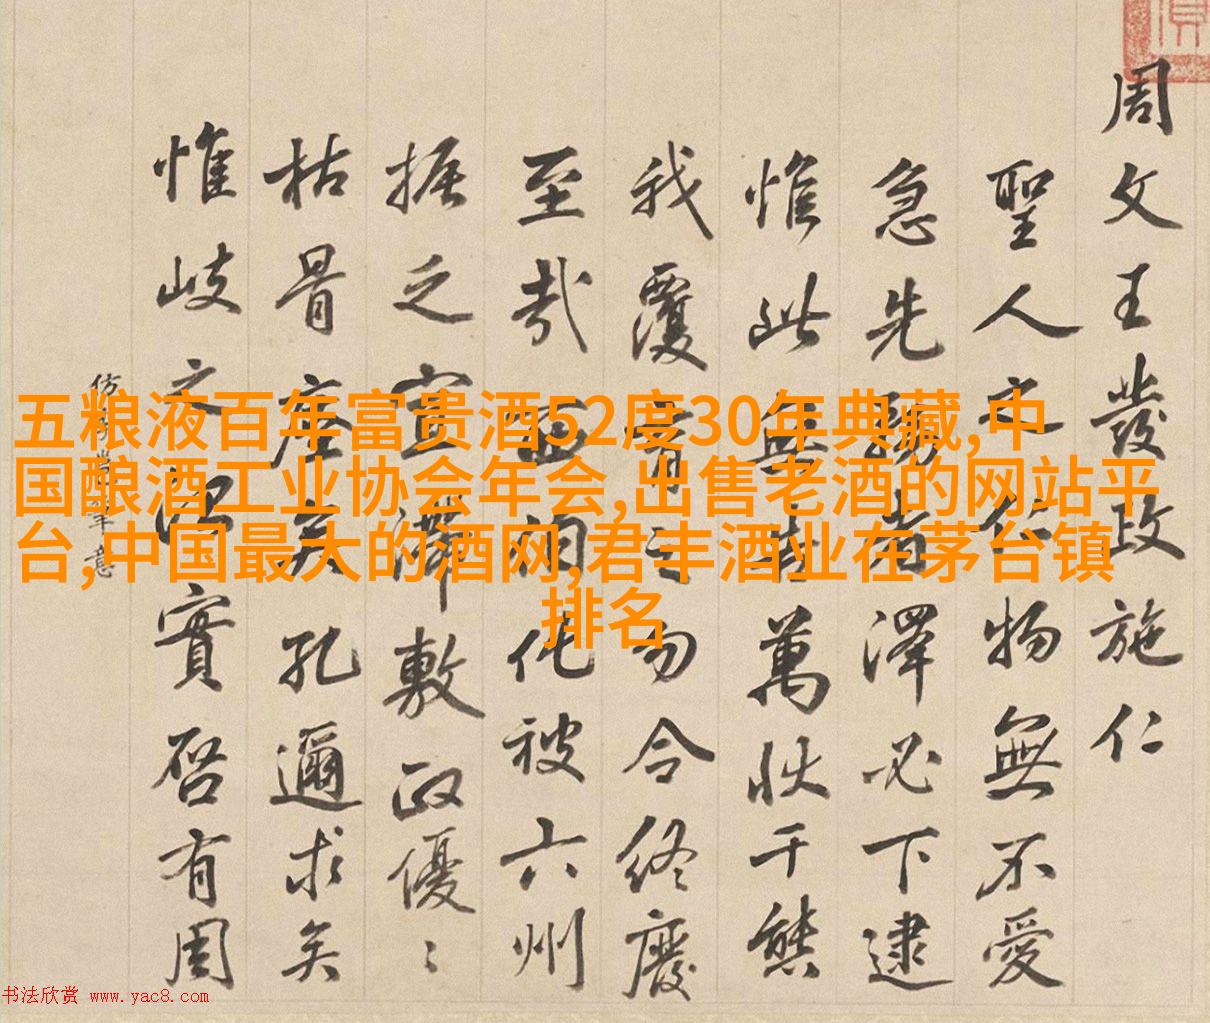 周文王發政施仁
聖人之仁物無不愛
急先者澤必下逮
惟此無萬狀千態
我覆育之勿令終
至哉西被六州
振之宣滯敷政優〻
枯骨矣孔邇求矣
惟岐之實啓有周
仿筆意
五粮液百年富贵酒52度30年典藏,中
国酿酒工业协会年会,出售老酒的网站平
台,中国最大的酒网,君丰酒业在茅台镇
排名
书法欣赏 www.yac8.com